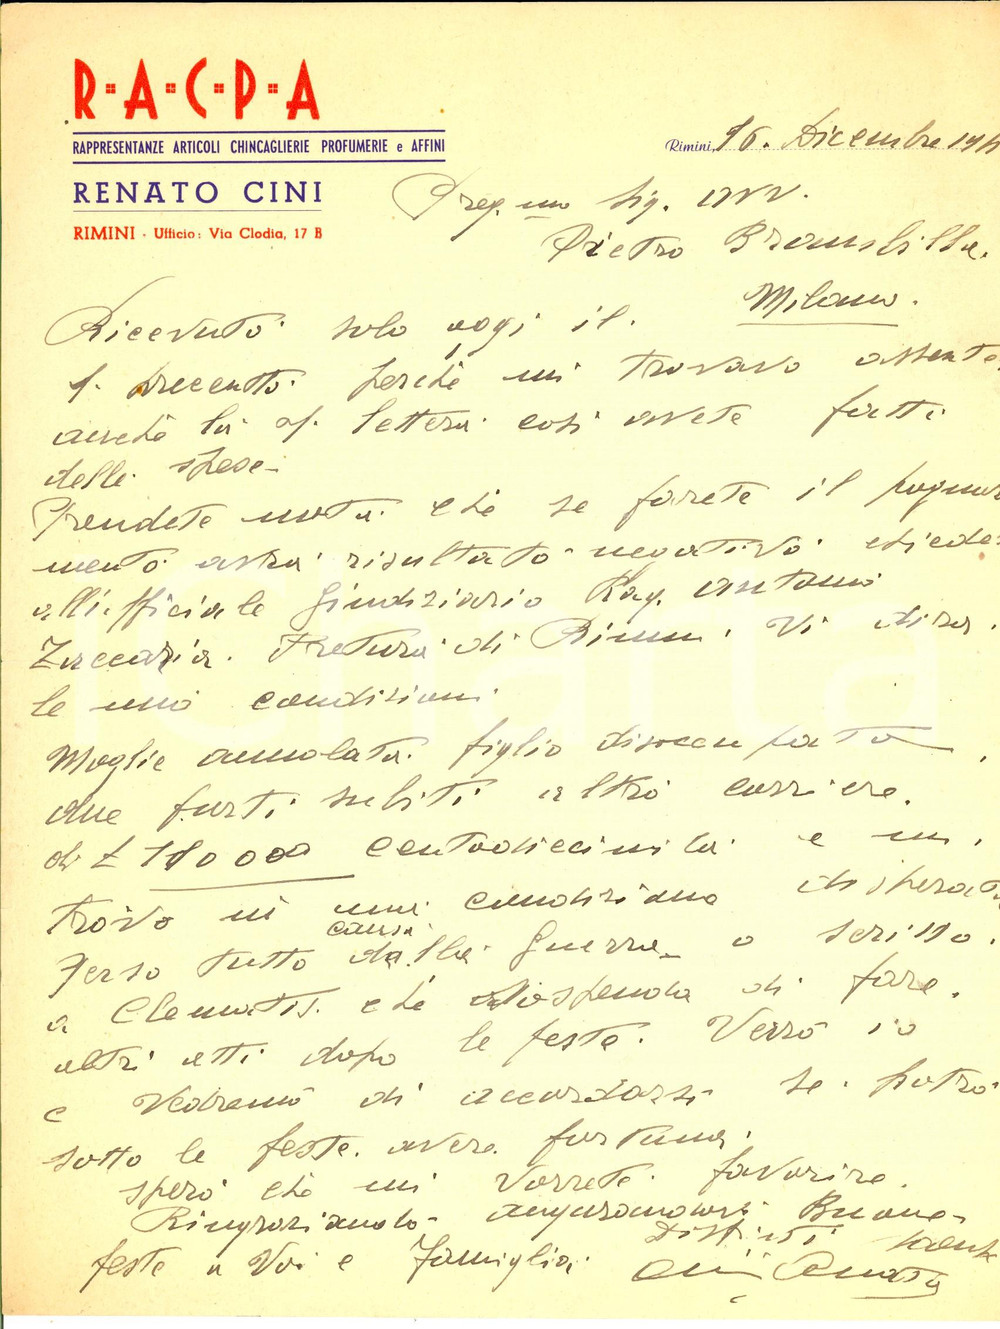 R·A·C·P·A
RAPPRESENTANZE ARTICOLI CHINCAGLIERIE PROFUMERIE e AFFINI
RENATO CINI
RIMINI - Ufficio: Via Clodia, 17 B
Rimini, 16. Dicembre 194
Preg.mo Sig. avv.
Pietro Brambilla.
Milano.
Ricevuto solo oggi il
perchè mi trovavo assente
anche la lettera così avete fatti
delle spese
Prendete nota che se farete il pignora
mento avrà risultato negativo chiede
all'ufficiale Giudiziario Rag. Antonio
Zaccaria. Pretura di Rimini. Vi dirà
le mie condizioni
Moglie ammalata figlio disoccupato
due furti subiti altro corriere.
di £ 110000 centodiecimila e mi
trovo in una condizione disperata
Perso tutto causa della Guerra o scritto
a Clematis. che sospenda di fare
altri atti dopo le feste. Verrò io
e vedremo di accordarsi se potrò
sotto le feste avere fortuna.
spero che mi vorrete favorire.
Ringraziando augurandovi Buone
feste a Voi e Famiglia Distinti
Cini Renato